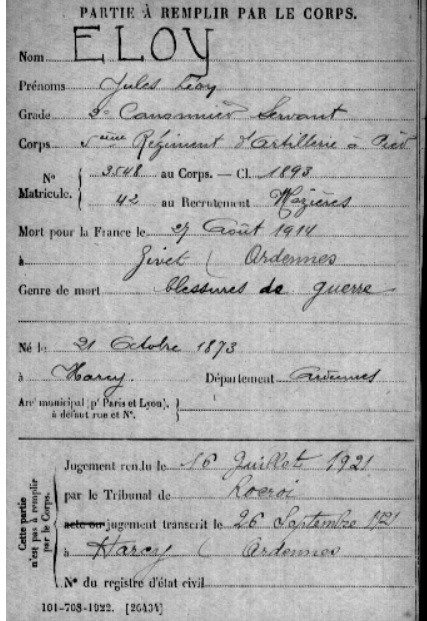 PARTIE À REMPLIR PAR LE CORPS.
Nom ELOY
Prénoms Jules Léon
Grade 2e Canonnier Servant
Corps 5ème Régiment d'Artillerie à Pied
No Matricule. 3548 au Corps. — Cl. 1893
42 au Recrutement Mézières
Mort pour la France le 27 Août 1914
à Givet (Ardennes
Genre de mort blessures de guerre
Né le 21 Octobre 1873
à Harcy. Département Ardennes
Arrt municipal (pr Paris et Lyon),
à défaut rue et No.
Cette partie n'est pas à remplir par le Corps.
Jugement rendu le 16 Juillet 1921
par le Tribunal de Rocroi
acte ou jugement transcrit le 26 Septembre 1921
à Harcy (Ardennes
No du registre d'état civil
101-708-1922. [26434]